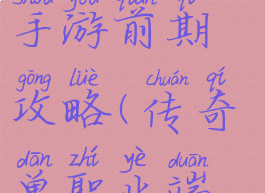 shǒu yóu qián qī
手游前期
gōng lüè chuán qí
攻略(传奇
dān zhí yè duān
单职业端